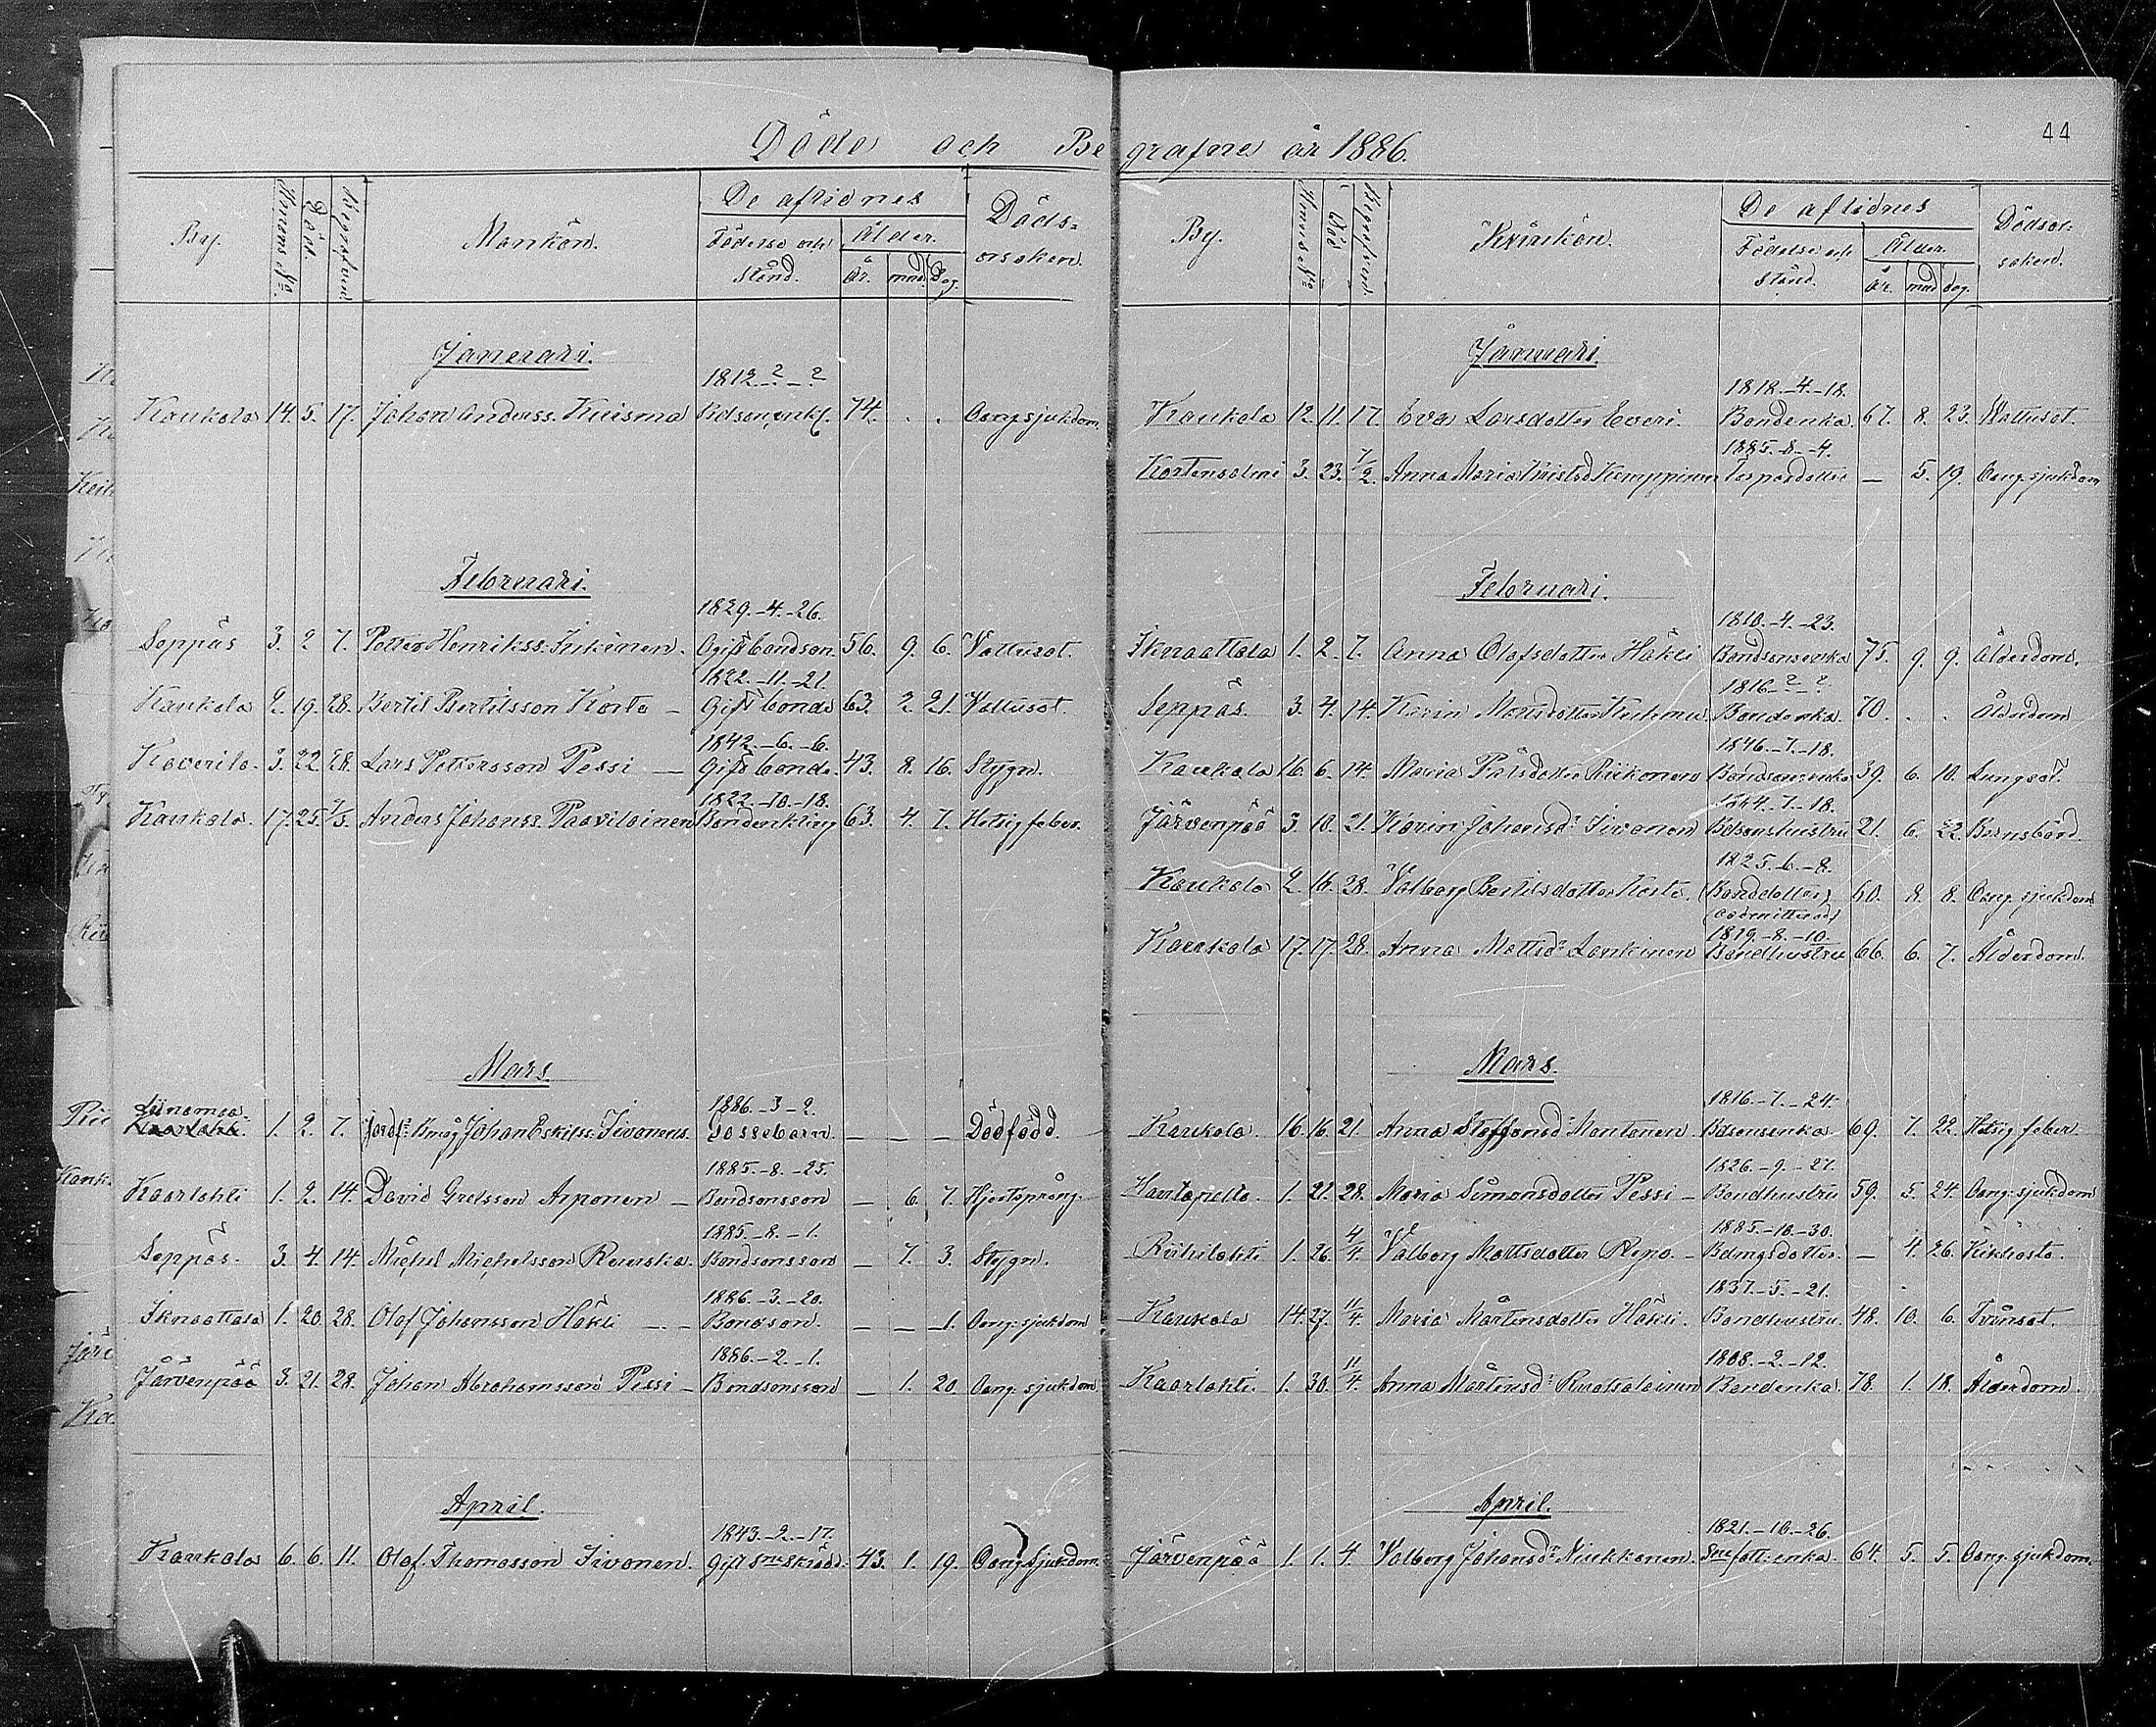 44
Döde och Begrafne år 1886.
By. Hemans No. Död. Begrafven Mankön. De aflidnes Födelse och Stånd. Ålder. År. mnd. Dag. Döds-orsaken.
Januari.
1812-?-?
Kaukola 14. 5. 17. Johan Anderss. Kuisma Bdsonenkl. 74. . . Oang. sjukdom.
Februari.
1829.-4.-26.
Seppäs 3. 2 7. Petter Henrikss. Inkinen. Ogift bondson. 56. 9. 6. Vattusot.
1822.-11.-21.
Kaukola 2. 19. 28. Bertil Bertilsson Kosto - Gift bonde 63. 2 21. Vattusot.
1842.-6.-6.
Koverila. 3. 22. 28. Lars Pettersson Pessi - Gift bonde. 43. 8. 16. Stygn.
1822.-10.-18.
Kaukola. 17. 25. 7/3. Anders Johanss. Paavilainen Bondenkling 63. 4. 7. Hetsig feber.
Mars.
1886.-3-2.
Liinamaa. Kaarlahti. 1. 2. 7. Jordf: Kmåg Johan Eskilss. Sivonens. Gossebarn. - - - Dödfödd.
1885.-8.-25.
Kaarlahti 1. 2. 14. David Grelsson Arponen - Bondsonsson - 6. 7. Hjertsprång.
1885.-8.-1.
Seppäs. 3. 4. 14. Michel Michelsson Rauska. Bondsonsson - 7. 3. Stygn.
1886.-3.-20.
Iknaattala 1. 20. 28. Olof Johansson Häkli - - Bondson. - - 1. Oang. sjukdom
1886.-2.-1.
Järvenpää 3. 21. 28. Johan Abrahamsson Pessi - Bondsonsson - 1. 20. Oang. sjukdom
April.
1843.-2.-17.
Kaukola 6. 6. 11. Olof Thomasson Sivonen. Gift Sne skrädd. 43. 1. 19. Oang. Sjukdom.
By. Hemans No Död Begrafven. Kvinkön. De aflidnes Födelse och Stånd. Ålder. År. mnd dag. Dödsor-saken.
Januari.
1818.-4.-18.
Kaukola 12. 11. 17. Eva Larsdotter Everi. Bondenka. 67. 8. 23. Vattusot.
1885.-8.-4.
Kortensalmi 3. 23. 7/2. Anna Maria Kristsd Kemppinen Torpardotter - 5. 19. Oang. sjukdom
Februari.
1810.-4.-23.
Iknaattala 1. 2. 7. Anna Olofsdotter Häkli Bondsonsenka 75. 9. 9. Ålderdom.
1816-?-?
Seppäs. 3. 4. 14. Karin Bondenka. 70. . . Ålderdom
1846.-7.-18.
Kaukola 16. 6. 14. Maria Pålsdotter Riikonen Bondsonsenka 39. 6. 10. Lungsot.
1864.-7.-18.
Järvenpää 3. 10. 21. Karin Johansdr Sivonen Bdsonshustru 21. 6. 22. Barnsbörd.
1825.-6.-8.
Kaukola 2. 16. 28. Valborg Bertilsdotter Kosto. Bondedotter (oadmitterad) 60. 8. 8. Oang. sjukdom
1819.-8.-10.
Kaukola 17. 17. 28. Anna Mattsdr Lankinen Bondhustru 66. 6. 7. Ålderdom.
Mars.
1816.-7.-24.
Kaukola. 16. 16. 21. Anna Staffansdr Montonen. Bdsonsenka 69. 7. 22. Hetsig feber.
1826.-9.-27.
Haatapelto. 1. 21. 28. Maria Simonsdotter Pessi - Bondhustru 59. 5. 24. Oang. sjukdom
1885.-10.-30.
Riihilahti 1. 26. 4/4. Valborg Mattsdotter Repo. - Bdmgsdotter - 4. 26. Kikhosta.
1837.-5.-21.
Kaukola 14. 27. 11/4. Maria Mårtensdotter Häkli. Bondhustru. 48. 10. 6. Tvinsot.
1808.-2.-12.
Kaarlahti. 1. 30. 11/4. Anna Mårtensdr Ruotsalainen Bondenka. 78. 1. 18. Ålderdom.
April.
1821.-10.-26.
Järvenpää 1. 1. 4. Valborg Johansdr Niukkanen. Sne fatt: enka. 64. 5. 5. Oang. sjukdom.